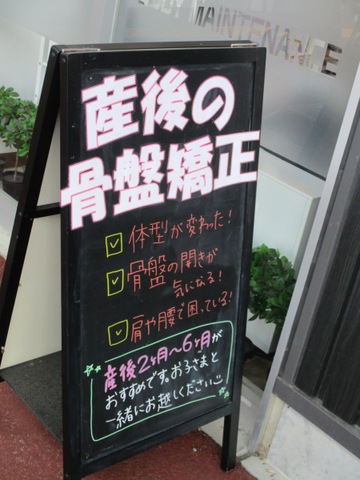 MAINTENANCE
産後の
骨盤矯正
体型が変わった!
骨盤の開きが
気になる!
肩や腰で困っている!
産後2ヶ月〜6ヶ月が
おすすめです。お子さまと
一緒にお越しください